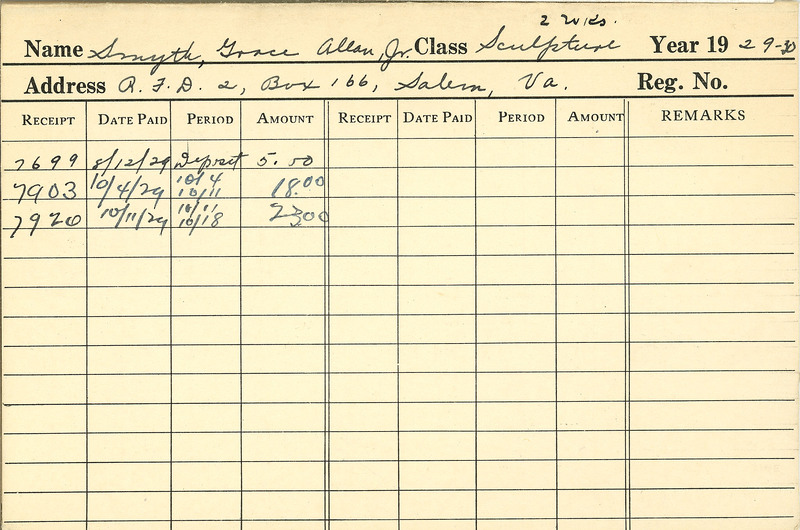 2 wks.
Name Smyth, Grace Allan, Jr. Class Sculpture Year 19 29-30
Address R.F.D. 2, Box 166, Salem, Va. Reg. No.
RECEIPT DATE PAID PERIOD AMOUNT RECEIPT DATE PAID PERIOD AMOUNT REMARKS
7699 8/12/29 Deposit 5.00
7903 10/4/29 10/4 10/11 18.00
7920 10/11/29 10/11 10/18 23.00